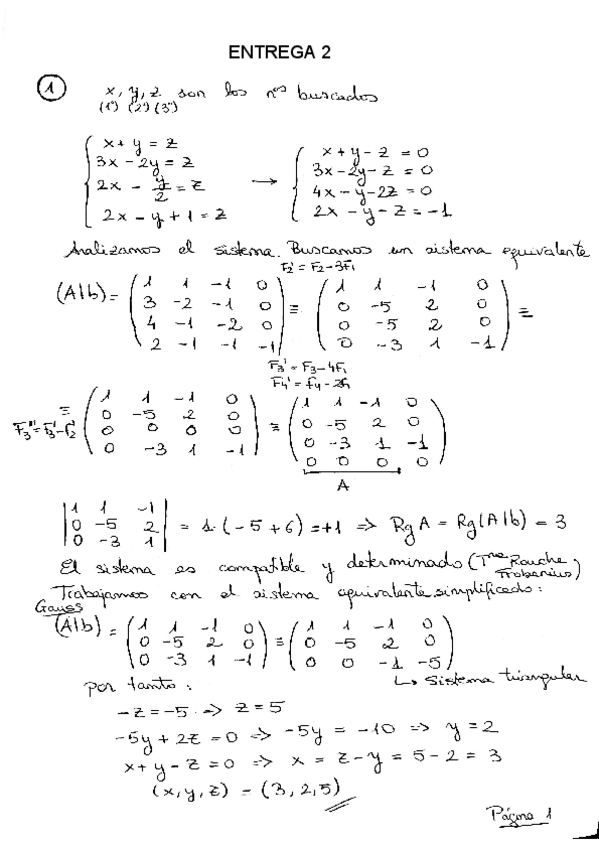 ENTREGA 2
① x, y, z son los nºs buscados
(1º) (2º) (3º)
{ x + y = z
3x - 2y = z
2x - y/2 = z
2x - y + 1 = z
→
{ x + y - z = 0
3x - 2y - z = 0
4x - y - 2z = 0
2x - y - z = -1
Analizamos el sistema. Buscamos un sistema equivalente
F2' = F2 - 3F1
(A|b) = ( 1 1 -1 0
3 -2 -1 0
4 -1 -2 0
2 -1 -1 -1 ) ≡ ( 1 1 -1 0
0 -5 2 0
0 -5 2 0
0 -3 1 -1 ) ≡
F3' = F3 - 4F1
F4' = F4 - 2F1
≡
F3'' = F3' - F2'
( 1 1 -1 0
0 -5 2 0
0 0 0 0
0 -3 1 -1 ) ≡ ( 1 1 -1 0
0 -5 2 0
0 -3 1 -1
0 0 0 0 )
A
| 1 1 -1
0 -5 2
0 -3 1 | = 1·(-5+6) = +1 => Rg A = Rg(A|b) = 3
El sistema es compatible y determinado (Tma Rouche,
Frobenius)
Trabajamos con el sistema equivalente simplificado:
Gauss
(A|b) = ( 1 1 -1 0
0 -5 2 0
0 -3 1 -1 ) ≡ ( 1 1 -1 0
0 -5 2 0
0 0 -1 -5 )
↳ Sistema triangular
por tanto:
-z = -5 => z = 5
-5y + 2z = 0 => -5y = -10 => y = 2
x + y - z = 0 => x = z - y = 5 - 2 = 3
(x, y, z) = (3, 2, 5)
Página 1